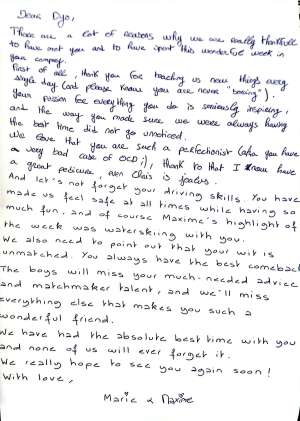 Dear Dyo,
There are a lot of reasons why we are really thankfull
to have met you and to have spent this wonderful week in
your company.
First of all, thank you for teaching us new things every
single day (and please know you are never "boring").
Your passion for everything you do is seriously inspiring,
and the way you made sure we were always having
the best time did not go unnoticed.
We love that you are such a perfectionist (aka you have
a very bad case of OCD ;), thank to that I now have
a great pedicure, even Chris is jealous.
And let's not forget your driving skills. You have
made us feel safe at all times while having so
much fun, and of course Maxime's highlight of
the week was waterskiing with you.
We also need to point out that your wit is
unmatched. You always have the best comeback
The boys will miss your much-needed advice
and matchmaker talent, and we'll miss
everything else that makes you such a
wonderful friend.
We have had the absolute best time with you
and none of us will ever forget it.
We really hope to see you again soon!
With love,
Marie & Maxime